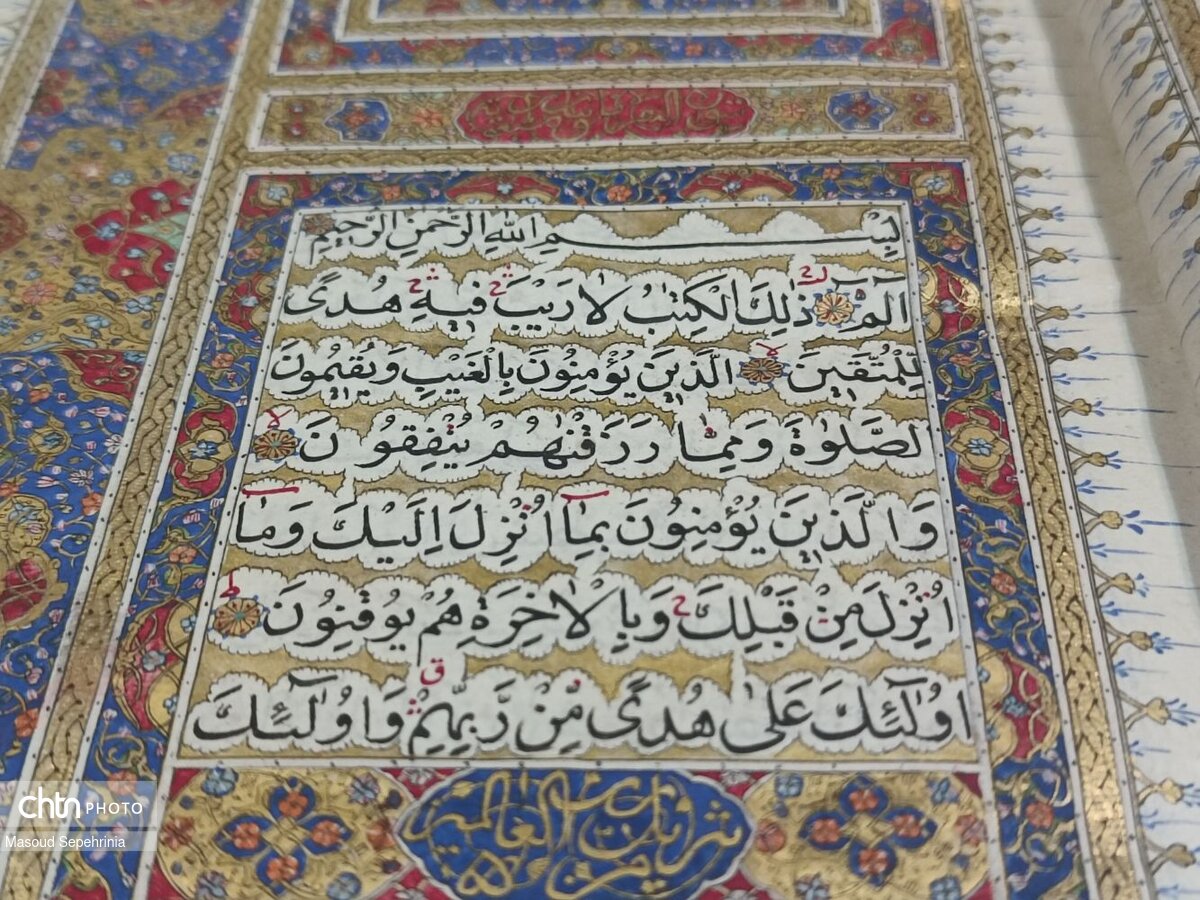 بِسْمِ اللّٰهِ الرَّحْمٰنِ الرَّحِيْمِ
الٓمٓ ذٰلِكَ الْكِتٰبُ لَا رَيْبَ فِيهِ هُدًى
لِلْمُتَّقِينَ الَّذِينَ يُؤْمِنُونَ بِالْغَيْبِ وَيُقِيمُونَ
الصَّلٰوةَ وَمِمَّا رَزَقْنٰهُمْ يُنْفِقُونَ
وَالَّذِينَ يُؤْمِنُونَ بِمَآ اُنْزِلَ اِلَيْكَ وَمَآ
اُنْزِلَ مِنْ قَبْلِكَ وَبِالْاٰخِرَةِ هُمْ يُوقِنُونَ
اُولٰٓئِكَ عَلٰى هُدًى مِنْ رَبِّهِمْ وَاُولٰٓئِكَ
chtn PHOTO
Masoud Sepehrinia